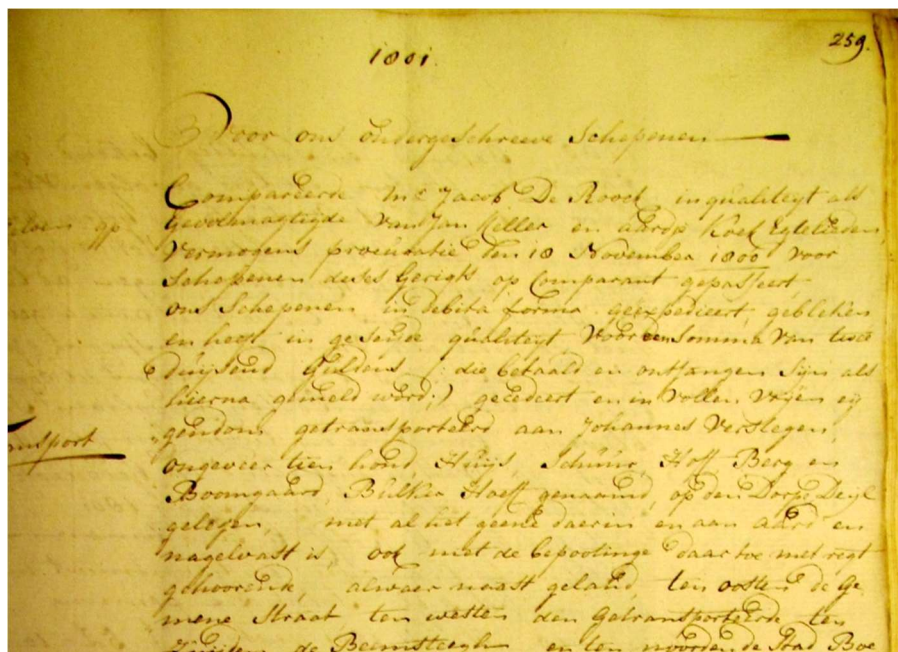 259.
1801.
Voor ons ondergeschreeve Schepenen
Compareerde Mr. Jacob De Roock in qualiteyt als
gevolmagtigde van Jan Keller en aardje Kock Egtelieden,
op
vermogens procuratie den 18 November 1800 voor
Schepenen deses Gerigts op Comparant gepasseert,
ons Schepenen in debita forma geexpedieert, gebleken
en heeft in geseide qualiteyt voor een Somma van twee
duijsend Guldens (: die betaald en ontfangen sijn als
hierna gemeld word :) gecedeert en in vollen vrijen ey
gendom getransporteerd aan Johannes Verstegen,
nsport
ongeveer tien hond, Huijs, Schuur, Hoff, Berg en
Boomgaard, Bulker Hoeff genaamd, op den Dorpe Deyl
gelegen, met al het geene daerin en aan aard en
nagelvast is, ook met de bepootinge daar toe met regt
gehoorende, alwaer naast geland, ten oosten de Ge
mene Straat ten westen den Getransporteerde ten
Zuijden de Beemsteegh en ten noorden de Stad Boe